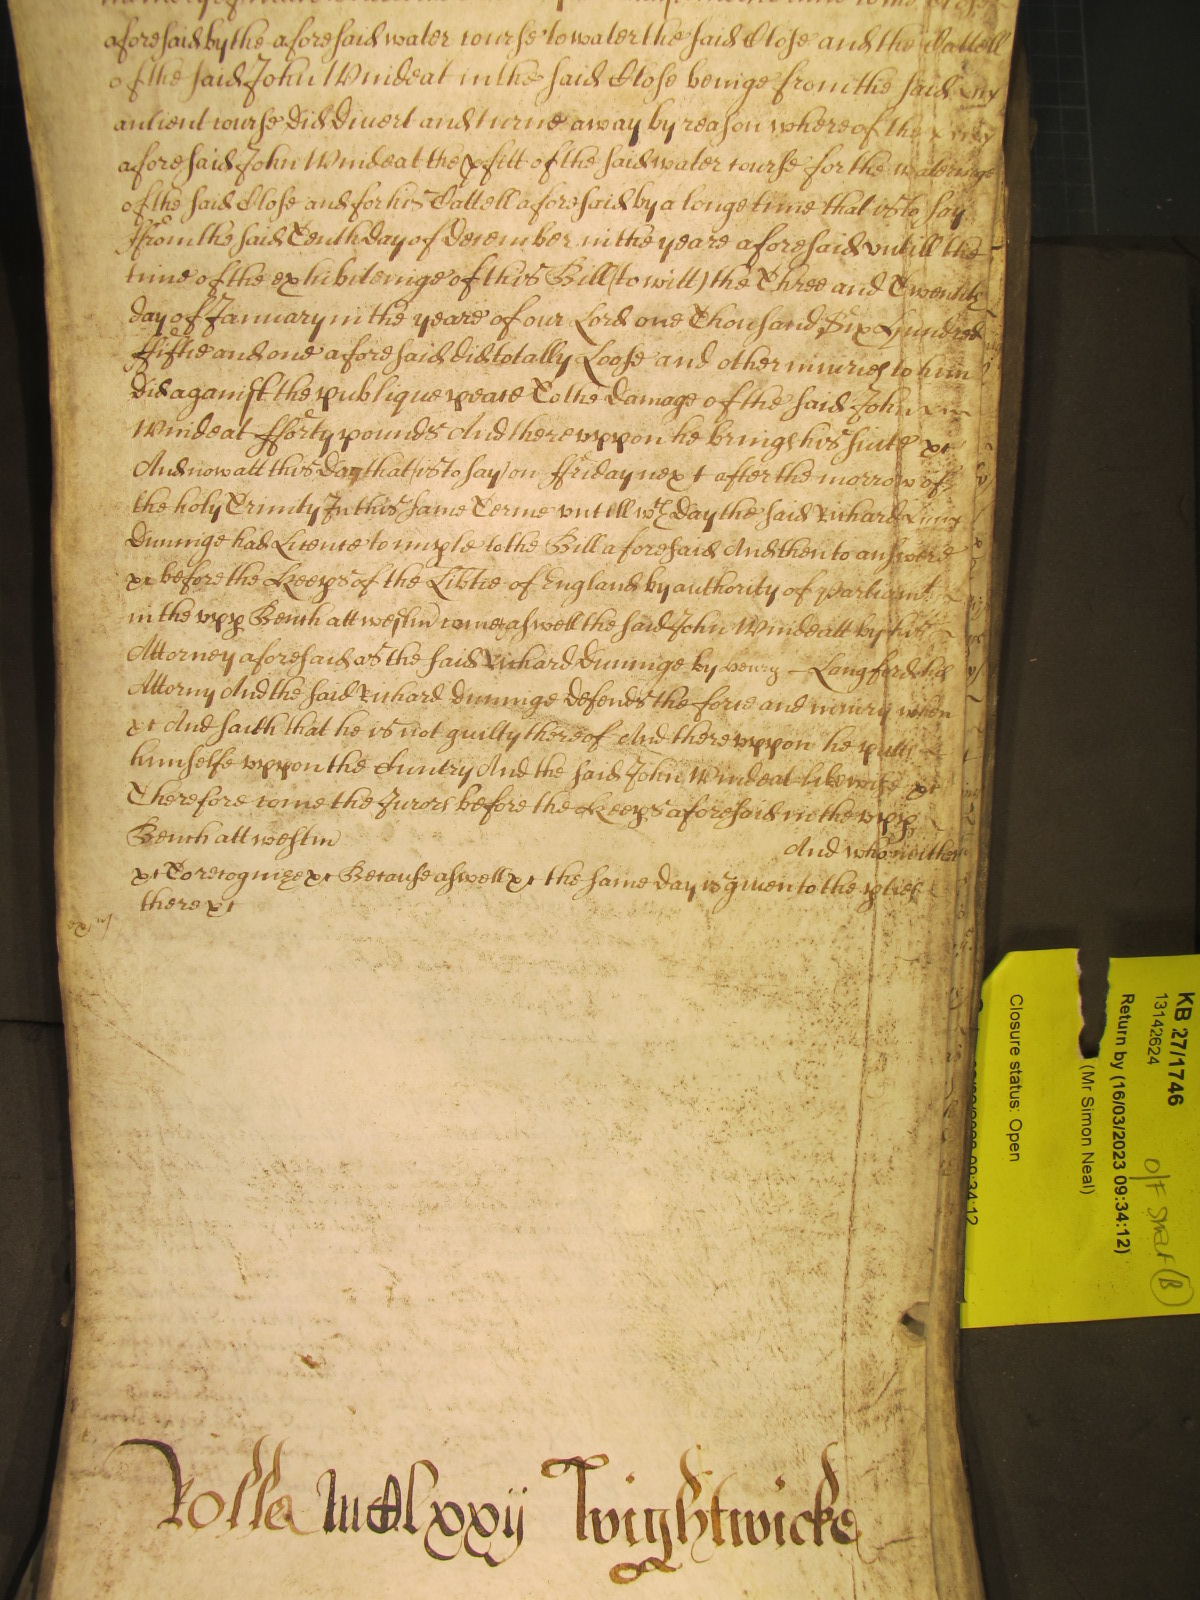 aforesaid by the aforesaid water course to water the said Close and the Cattell
of the said John Windeat in the said Close beinge from the said
antient course did divert and turne away by reason whereof the
aforesaid John Windeat the pfitt of the said water course for the wateringe
of the said Close and for his Cattell aforesaid by a longe time that is to say
ffrom the said Tenth day of December in the yeare aforesaid untill the
time of the exhibiteinge of this Bill (to witt) the Three and Twentith
day of January in the yeare of our Lord one Thousand Six Hundred
ffiftie and one aforesaid did totally Loose and other iniuries to him
did against the publique peace To the damage of the said John
Windeat fforty pounds And thereuppon he brings his suite &c
And now att this day that is to say on ffriday next after the morrow of
the holy Trinity In this same Terme untill wch day the said Richard
Duninge had Licence to imple to the Bill aforesaid And then to answere
&c before the Keeps of the Libtie of England by authority of parliamt
in the upp Bench att westm comes aswell the said John Windeatt by his
Attorney aforesaid as the said Richard Duninge by Henry Langford his
Attorny And the said Richard Duninge defends the force and iniury when
&c And saith that he is not guilty thereof And thereuppon he putts
himselfe uppon the Cuntry And the said John Windeat likewise &c
Therefore come the Jurors before the Keeps aforesaid in the upp
Bench att westm And who neither
&c To recognize &c Because aswell &c the same day is given to the pties
there &c
Rolle MDlxxij Twightwicke
KB 27/1746
13142624
Return by (16/03/2023 09:34:12)
(Mr Simon Neal)
Closure status: Open